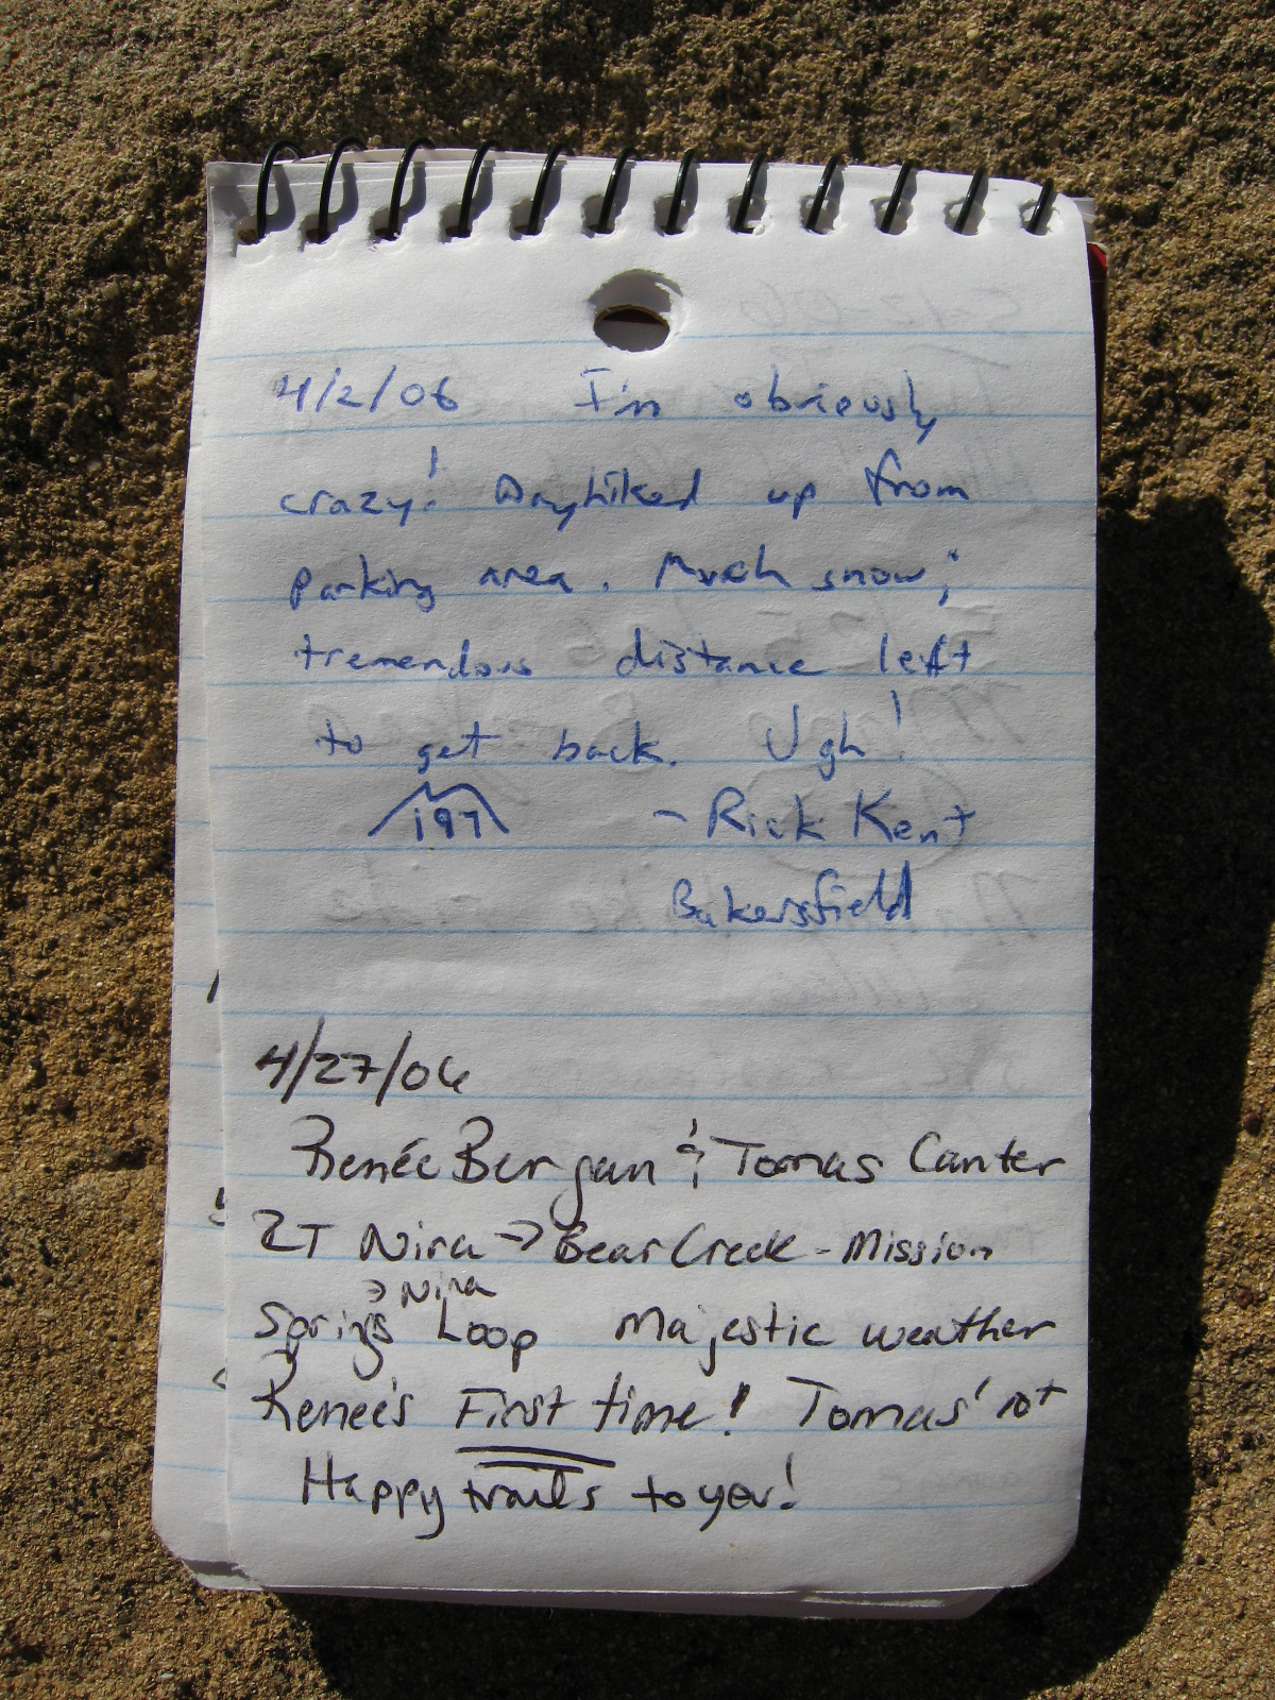 4/2/06 I'm obviously
crazy! Dayhiked up from
parking area. Much snow;
tremendous distance left
to get back. Ugh!
197 - Rick Kent
Bakersfield
4/27/06
Renée Bergan & Tomas Canter
RT Nira → Bear Creek - Mission
→ Nira
Springs Loop Majestic weather
Renee's First time! Tomas' not
Happy trails to you!